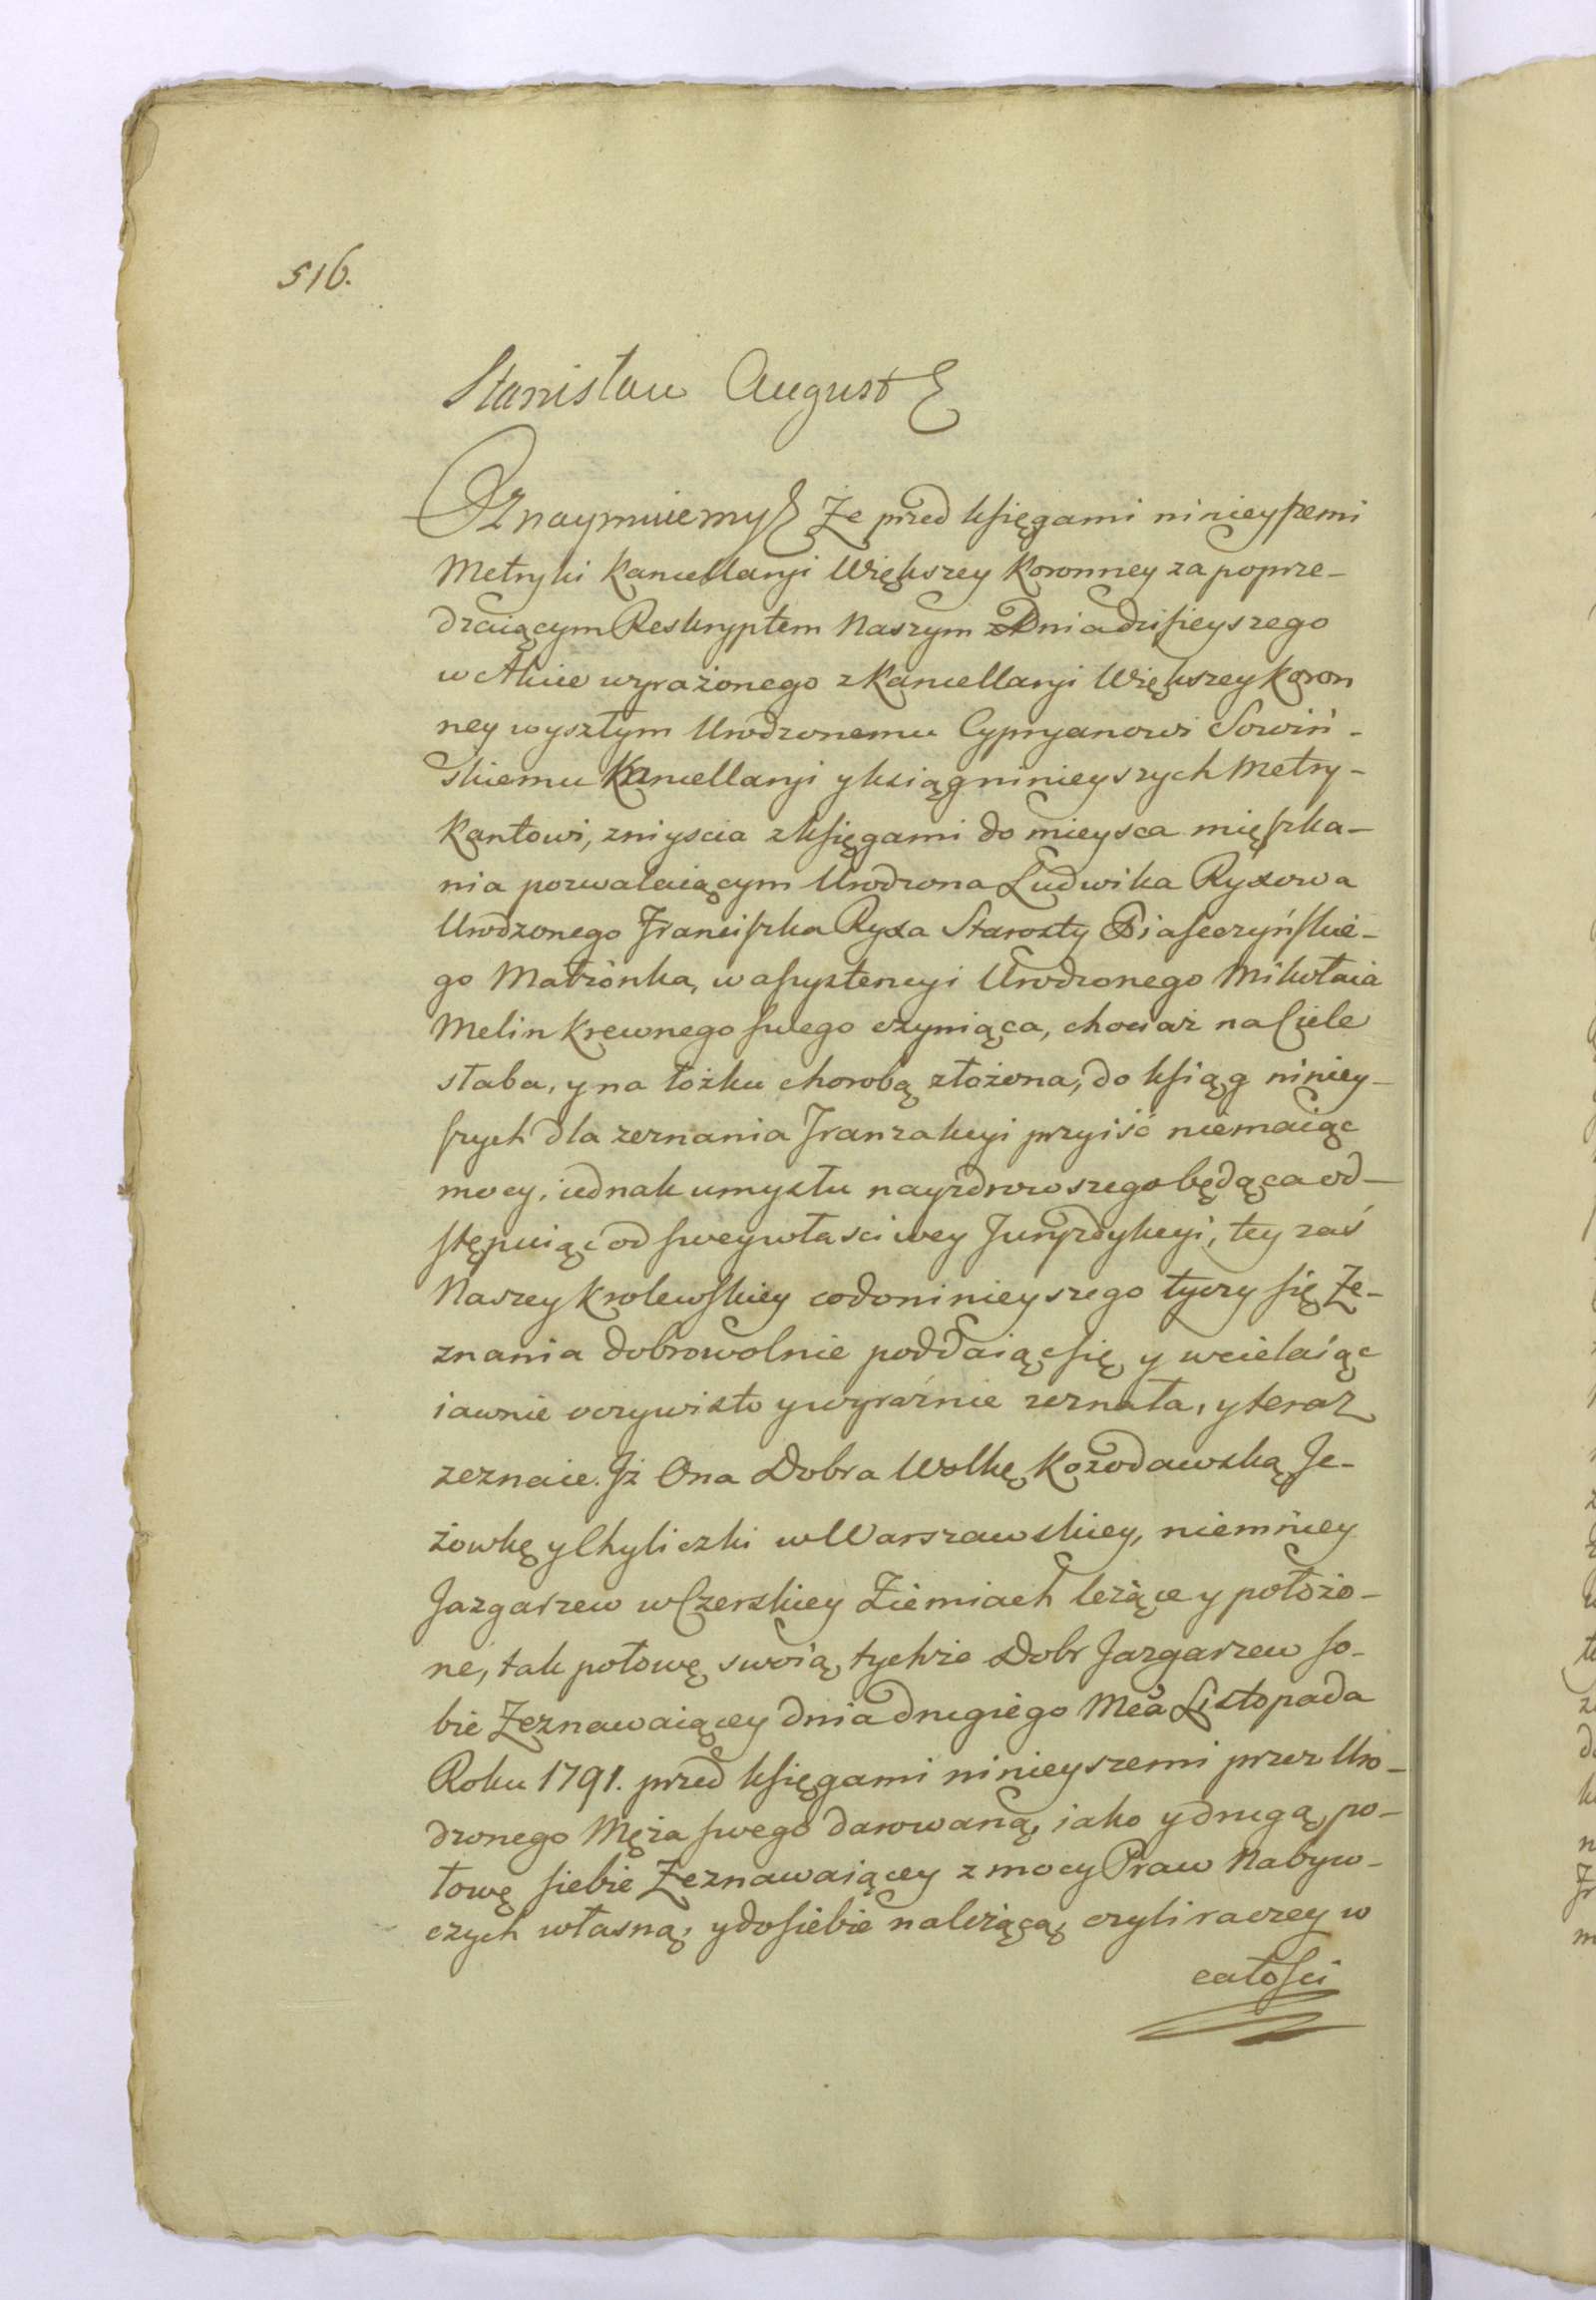 516.
Stanisław August
Oznaymuiemy Że przed księgami ninieyszemi
Metryki Kancellaryi Większey Koronney za poprze-
dzaiącym Reskryptem Naszym z Dnia dzisieyszego
w Akcie wyrażonego z Kancellaryi Większey Koron
ney wyszłym Urodzonemu Cypryanowi Sowiń-
skiemu Kancellaryi y ksiąg ninieyszych Metry-
kantowi, zniyscia z księgami do mieysca mięszka-
nia pozwalaiącym Urodzona Ludwika Ryxowa
Urodzonego Franciszka Ryxa Starosty Piaseczyńskie-
go Małżonka, w assystencyi Urodzonego Mikołaia
Melin krewnego swego czyniąca, chociaż na Ciele
słaba, y na łożku chorobą złożona, do ksiąg niniey-
szych dla zeznania Tranzakcyi przyiść niemaiąc
mocy, iednak umysłu nayzdrowszego będąca od-
stępuiąc od swey własciwey Juryzdykcyi, tey zaś
Naszey Krolewskiey co do ninieyszego tyczy się Ze-
znania dobrowolnie poddaiąc się y wcielaiąc
iawnie oczywisto y wyraźnie zeznała, y teraz
zeznaie. Iż Ona Dobra Wolkę Kozodawską Je-
żowkę y Chyliczki w Warszawskiey, niemniey
Jazgarzew w Czerskiey Ziemiach leżące y położo-
ne, tak połowę swoią tychże Dobr Jazgarzew so-
bie Zeznawaiącey dnia drugiego Mca Listopada
Roku 1791. przed księgami ninieyszemi przez Uro-
dzonego Męża swego darowaną, iako y drugą po-
łowę siebie Zeznawaiącey z mocy Praw Nabyw-
czych własną, y do siebie należącą, czyli raczey w
całości